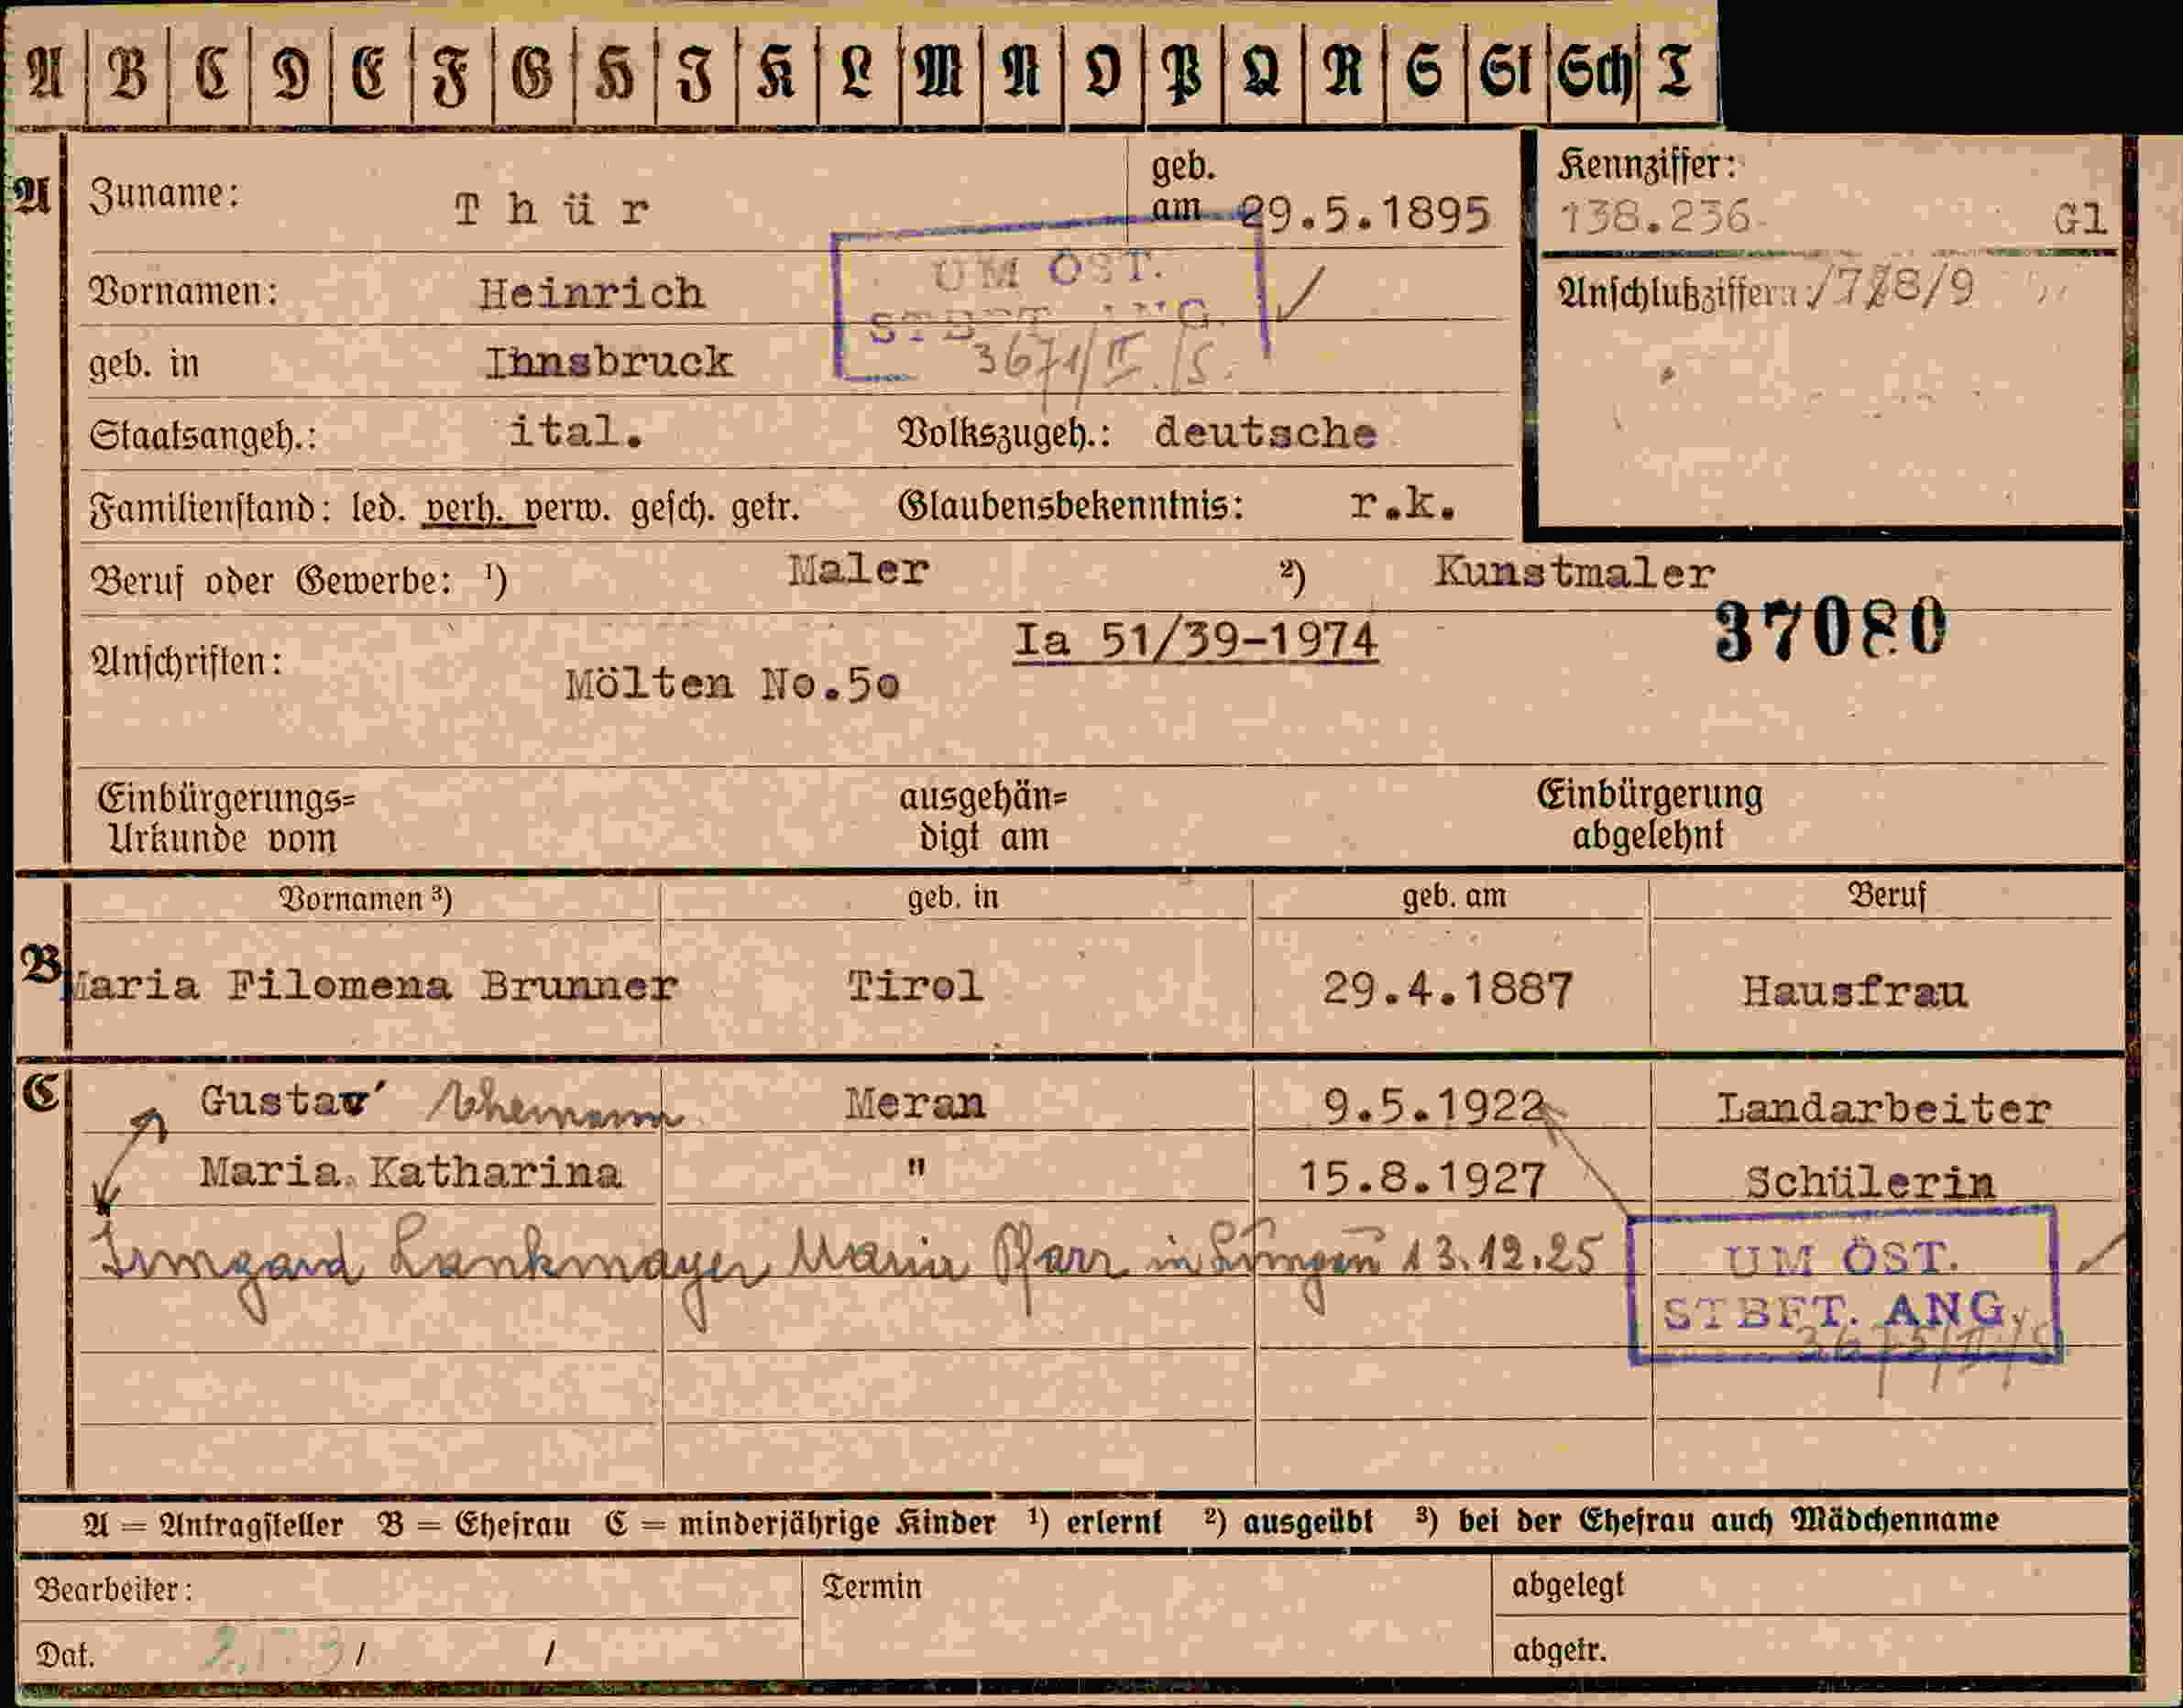 A B C D E F G H J K L M N O P Q R S St Sch T
A Zuname: Thür geb. am 29.5.1895 Kennziffer: 138.236 Gl
UM ÖST.
Vornamen: Heinrich Anschlußziffern: /778/9
geb. in Ihnsbruck 3671/II/S.
Staatsangeh.: ital. Volkszugeh.: deutsche
Familienstand: led. verh. verw. gesch. getr. Glaubensbekenntnis: r.k.
Beruf oder Gewerbe: ¹) Maler ²) Kunstmaler
Anschriften: Mölten No.50 Ia 51/39-1974 37080
Einbürgerungs= ausgehän= Einbürgerung
Urkunde vom digt am abgelehnt
Vornamen ³) geb. in geb. am Beruf
B Maria Filomena Brunner Tirol 29.4.1887 Hausfrau
C Gustav Ehemann Meran 9.5.1922 Landarbeiter
Maria Katharina " 15.8.1927 Schülerin
Irmgard Lankmayer Maria Pfarr in Lungau 13.12.25
UM ÖST.
STBFT. ANG.
A = Antragsteller B = Ehefrau C = minderjährige Kinder ¹) erlernt ²) ausgeübt ³) bei der Ehefrau auch Mädchenname
Bearbeiter: Termin abgelegt
Dat. / / abgetr.